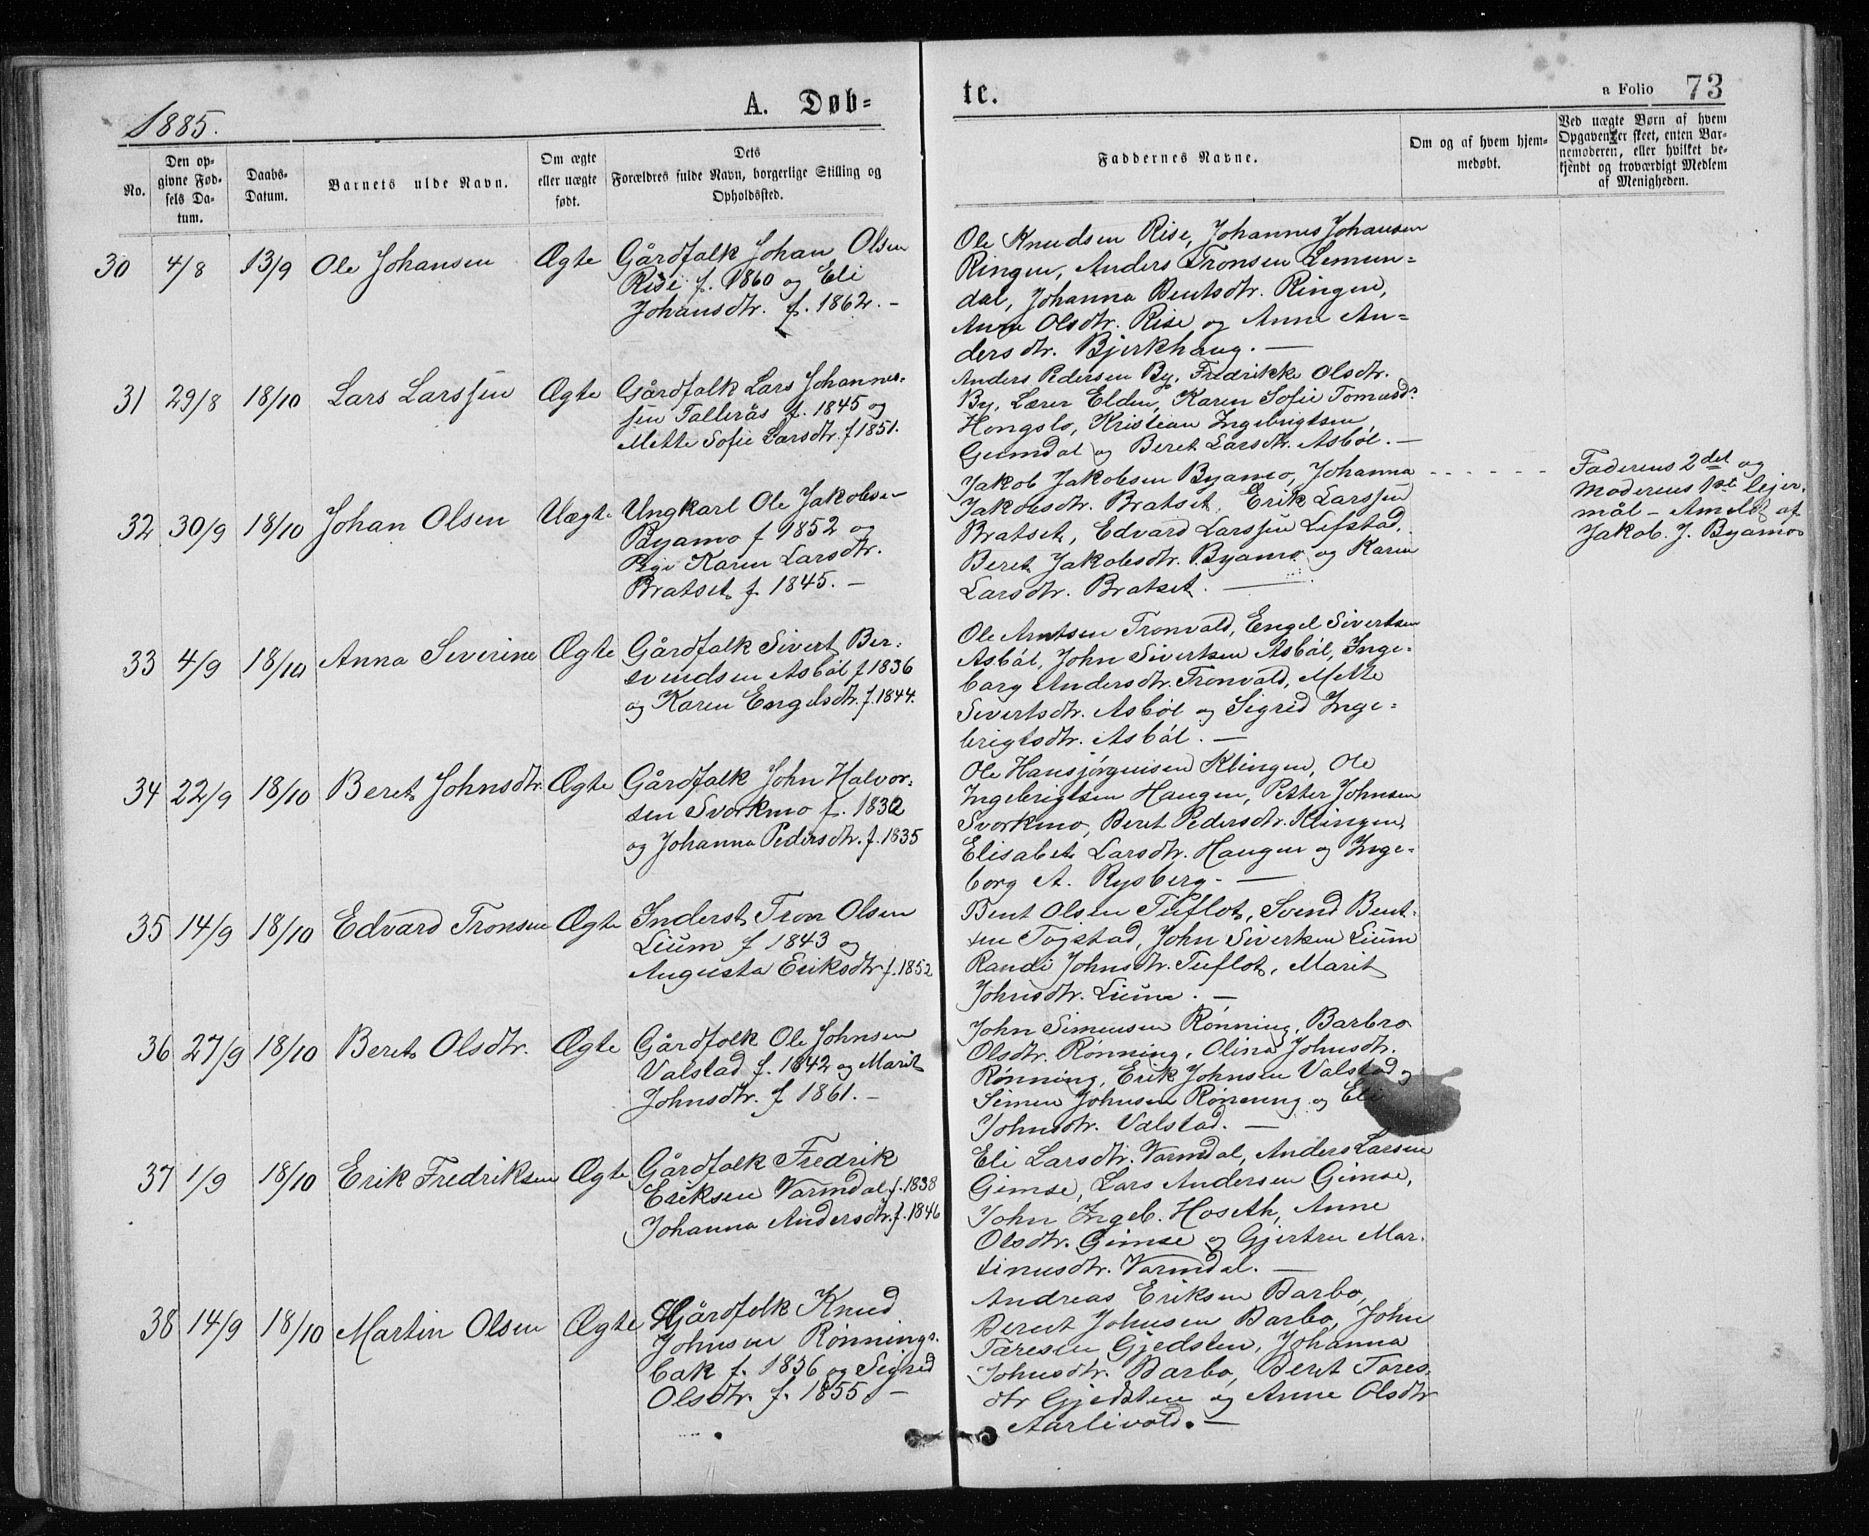 1885.
A. Døb-
te.
a Folio 73
No.
Den op-
givne Fød-
sels Da-
tum.
Daabs-
Datum.
Barnets ulde Navn.
Om ægte
eller uægte
født.
Dets
Forældres fulde Navn, borgerlige Stilling og
Opholdssted.
Faddernes Navne.
Om og af hvem hjem-
medøbt.
Ved uægte Børn af hvem
Opgaven er skeet, enten Bar-
nemoderen, eller hvilket be-
kjendt og troværdigt Medlem
af Menigheden.
30 4/8 13/9 Ole Johansen Ægte
Gårdfolk Johan Olsen
Rise f. 1860 og Eli
Johansdtr. f. 1862. -
Ole Knudsen Rise, Johannes Johansen
Ringen, Anders Tronsen Lemun=
dal, Johanna Bentsdtr. Ringen,
Anne Olsdtr. Rise og Anne An=
dersdtr. Bjerkhaug. -
31 29/8 18/10 Lars Larssen Ægte
Gårdfolk Lars Johannes-
sen Tallerås f. 1845 og
Mette Sofie Larsdtr. f 1851.
Anders Pedersen By, Fredrikke Olsdtr.
By, Lærer Elden, Karen Sofie Tomasd.
Hongslo, Kristian Ingebrigtsen
Gumdal og Beret Larsdtr. Asbøl. -
32 30/9 18/10 Johan Olsen Uægte
Ungkarl Ole Jakobsen
Byamo f 1852 og
Pige Karen Larsdtr.
Bratset f 1845. -
Jakob Jakobsen Byamo, Johanna
Jakobsdtr. Bratset, Erik Larssen
Bratset, Edvard Larssen Lefstad,
Beret Jakobsdtr. Byamo og Karen
Larsdtr. Bratset. -
Faderens 2det og
Moderens 1ste lejer-
mål - Anmeldt af
Jakob. J. Byamo
33 4/9 18/10 Anna Severine Ægte
Gårdfolk Sivert Ber-
svendsen Asbøl f 1836
og Karen Engelsdtr. f. 1844.
Ole Arntsen Tronvold, Engel Sivertsen
Asbøl, John Sivertsen Asbøl, Inge-
borg Andersdtr. Tronvold, Mette
Sivertsdtr. Asbøl og Sigrid Inge-
brigtsdtr. Asbøl. -
34 22/9 18/10 Beret Johnsdtr. Ægte
Gårdfolk John Halvor-
sen Svorkmo f. 1832
og Johanna Pedersdtr. f. 1835
Ole Hansjørgensen Klingen, Ole
Ingebrigtsen Haugen, Petter Johnsen
Svorkmo, Beret Pedersdtr. Klingen,
Elisabet Larsdtr. Haugen og Inge-
borg A. Rysberg. -
35 14/9 18/10 Edvard Tronsen Ægte
Inderst Tron Olsen
Lium f 1843 og
Augusta Eriksdtr f. 1852
Bent Olsen Tuflot, Svend Bent-
sen Togstad, John Sivertsen Lium
Randi Johnsdtr. Tuflot, Marit
Johnsdtr. Lium. -
36 27/9 18/10 Beret Olsdtr. Ægte
Gårdfolk Ole Johnsen
Valstad f. 1842 og Marit
Johnsdtr. f 1861. -
John Simensen Rønning, Barbro
Olsdtr. Rønning, Olina Johnsdtr.
Rønning, Erik Johnsen Valstad og
Simen Johnsen Rønning og Eli
Johnsdtr. Valstad. -
37 1/9 18/10 Erik Fredriksen Ægte
Gårdfolk Fredrik
Eriksen Varmdal f. 1838
Johanna Andersdtr. f. 1846
Eli Larsdtr. Varmdal, Anders Larsen
Gimse, Lars Andersen Gimse,
John Ingeb. Hoseth, Anne
Olsdtr. Gimse og Gjertru Mar-
tinusdtr. Varmdal. -
38 14/9 18/10 Martin Olsen Ægte
Gårdfolk Knud
Johnsen Rønnings-
bak f. 1836 og Sigrid
Olsdtr. f. 1855. -
Andreas Eriksen Barbo,
Beret Johnsen Barbo, John
Taresen Gjedsten, Johanna
Johnsdtr. Barbo, Beret Tores-
dtr Gjedsten og Anne Olsdtr
Aarlivold. -